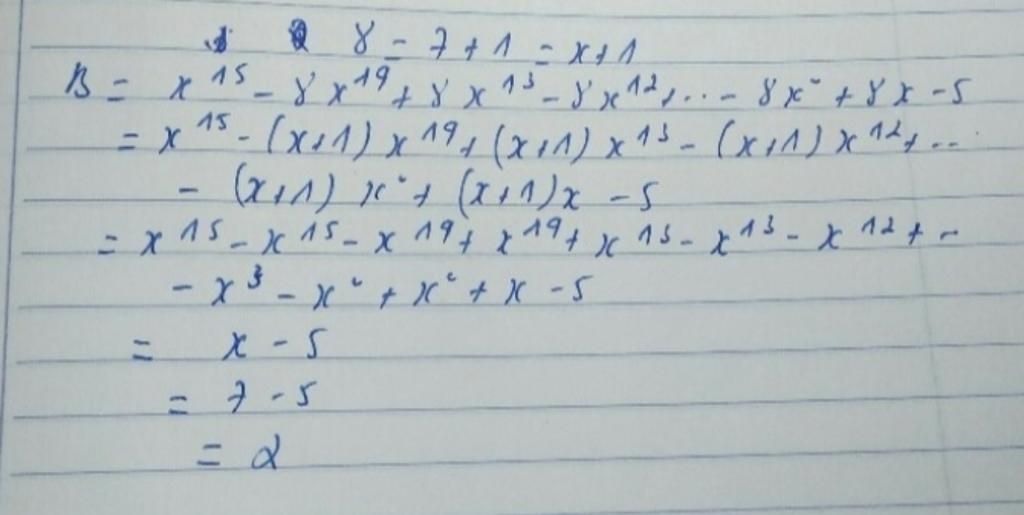 8 = 7 + 1 = x + 1
B = x^15 - 8x^14 + 8x^13 - 8x^12 + ... - 8x² + 8x - 5
= x^15 - (x+1) x^14 + (x+1) x^13 - (x+1) x^12 + ...
- (x+1) x² + (x+1)x - 5
= x^15 - x^15 - x^14 + x^14 + x^13 - x^13 - x^12 + ...
- x^3 - x² + x² + x - 5
= x - 5
= 7 - 5
= 2